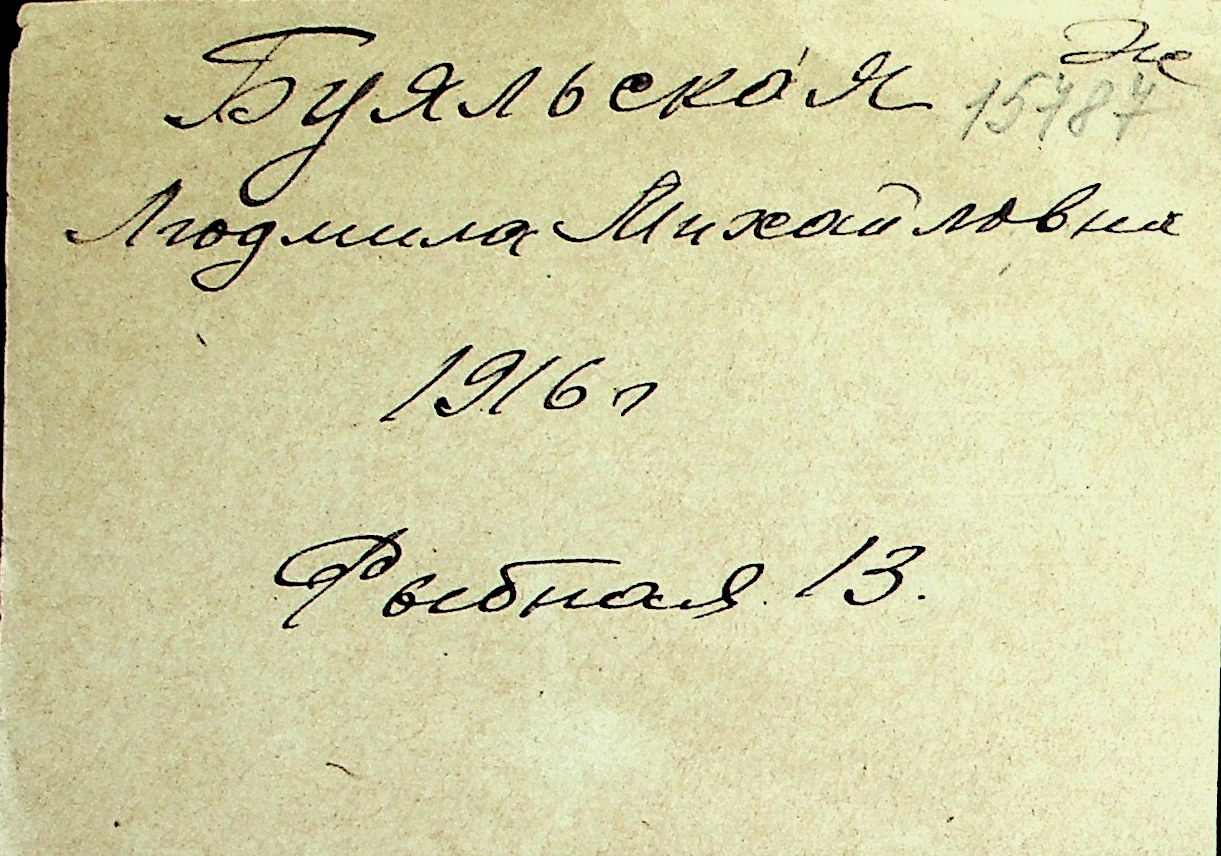 Буяльская
15787
Людмила Михайловна
1916 г
Рыбная 13.